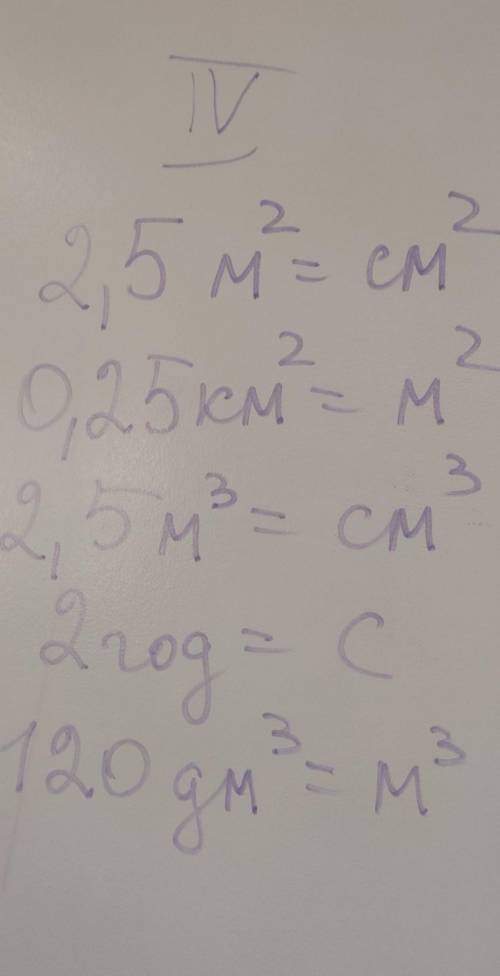 IV
2,5 м² = см²
0,25 км² = м²
2,5 м³ = см³
2 год = с
120 дм³ = м³